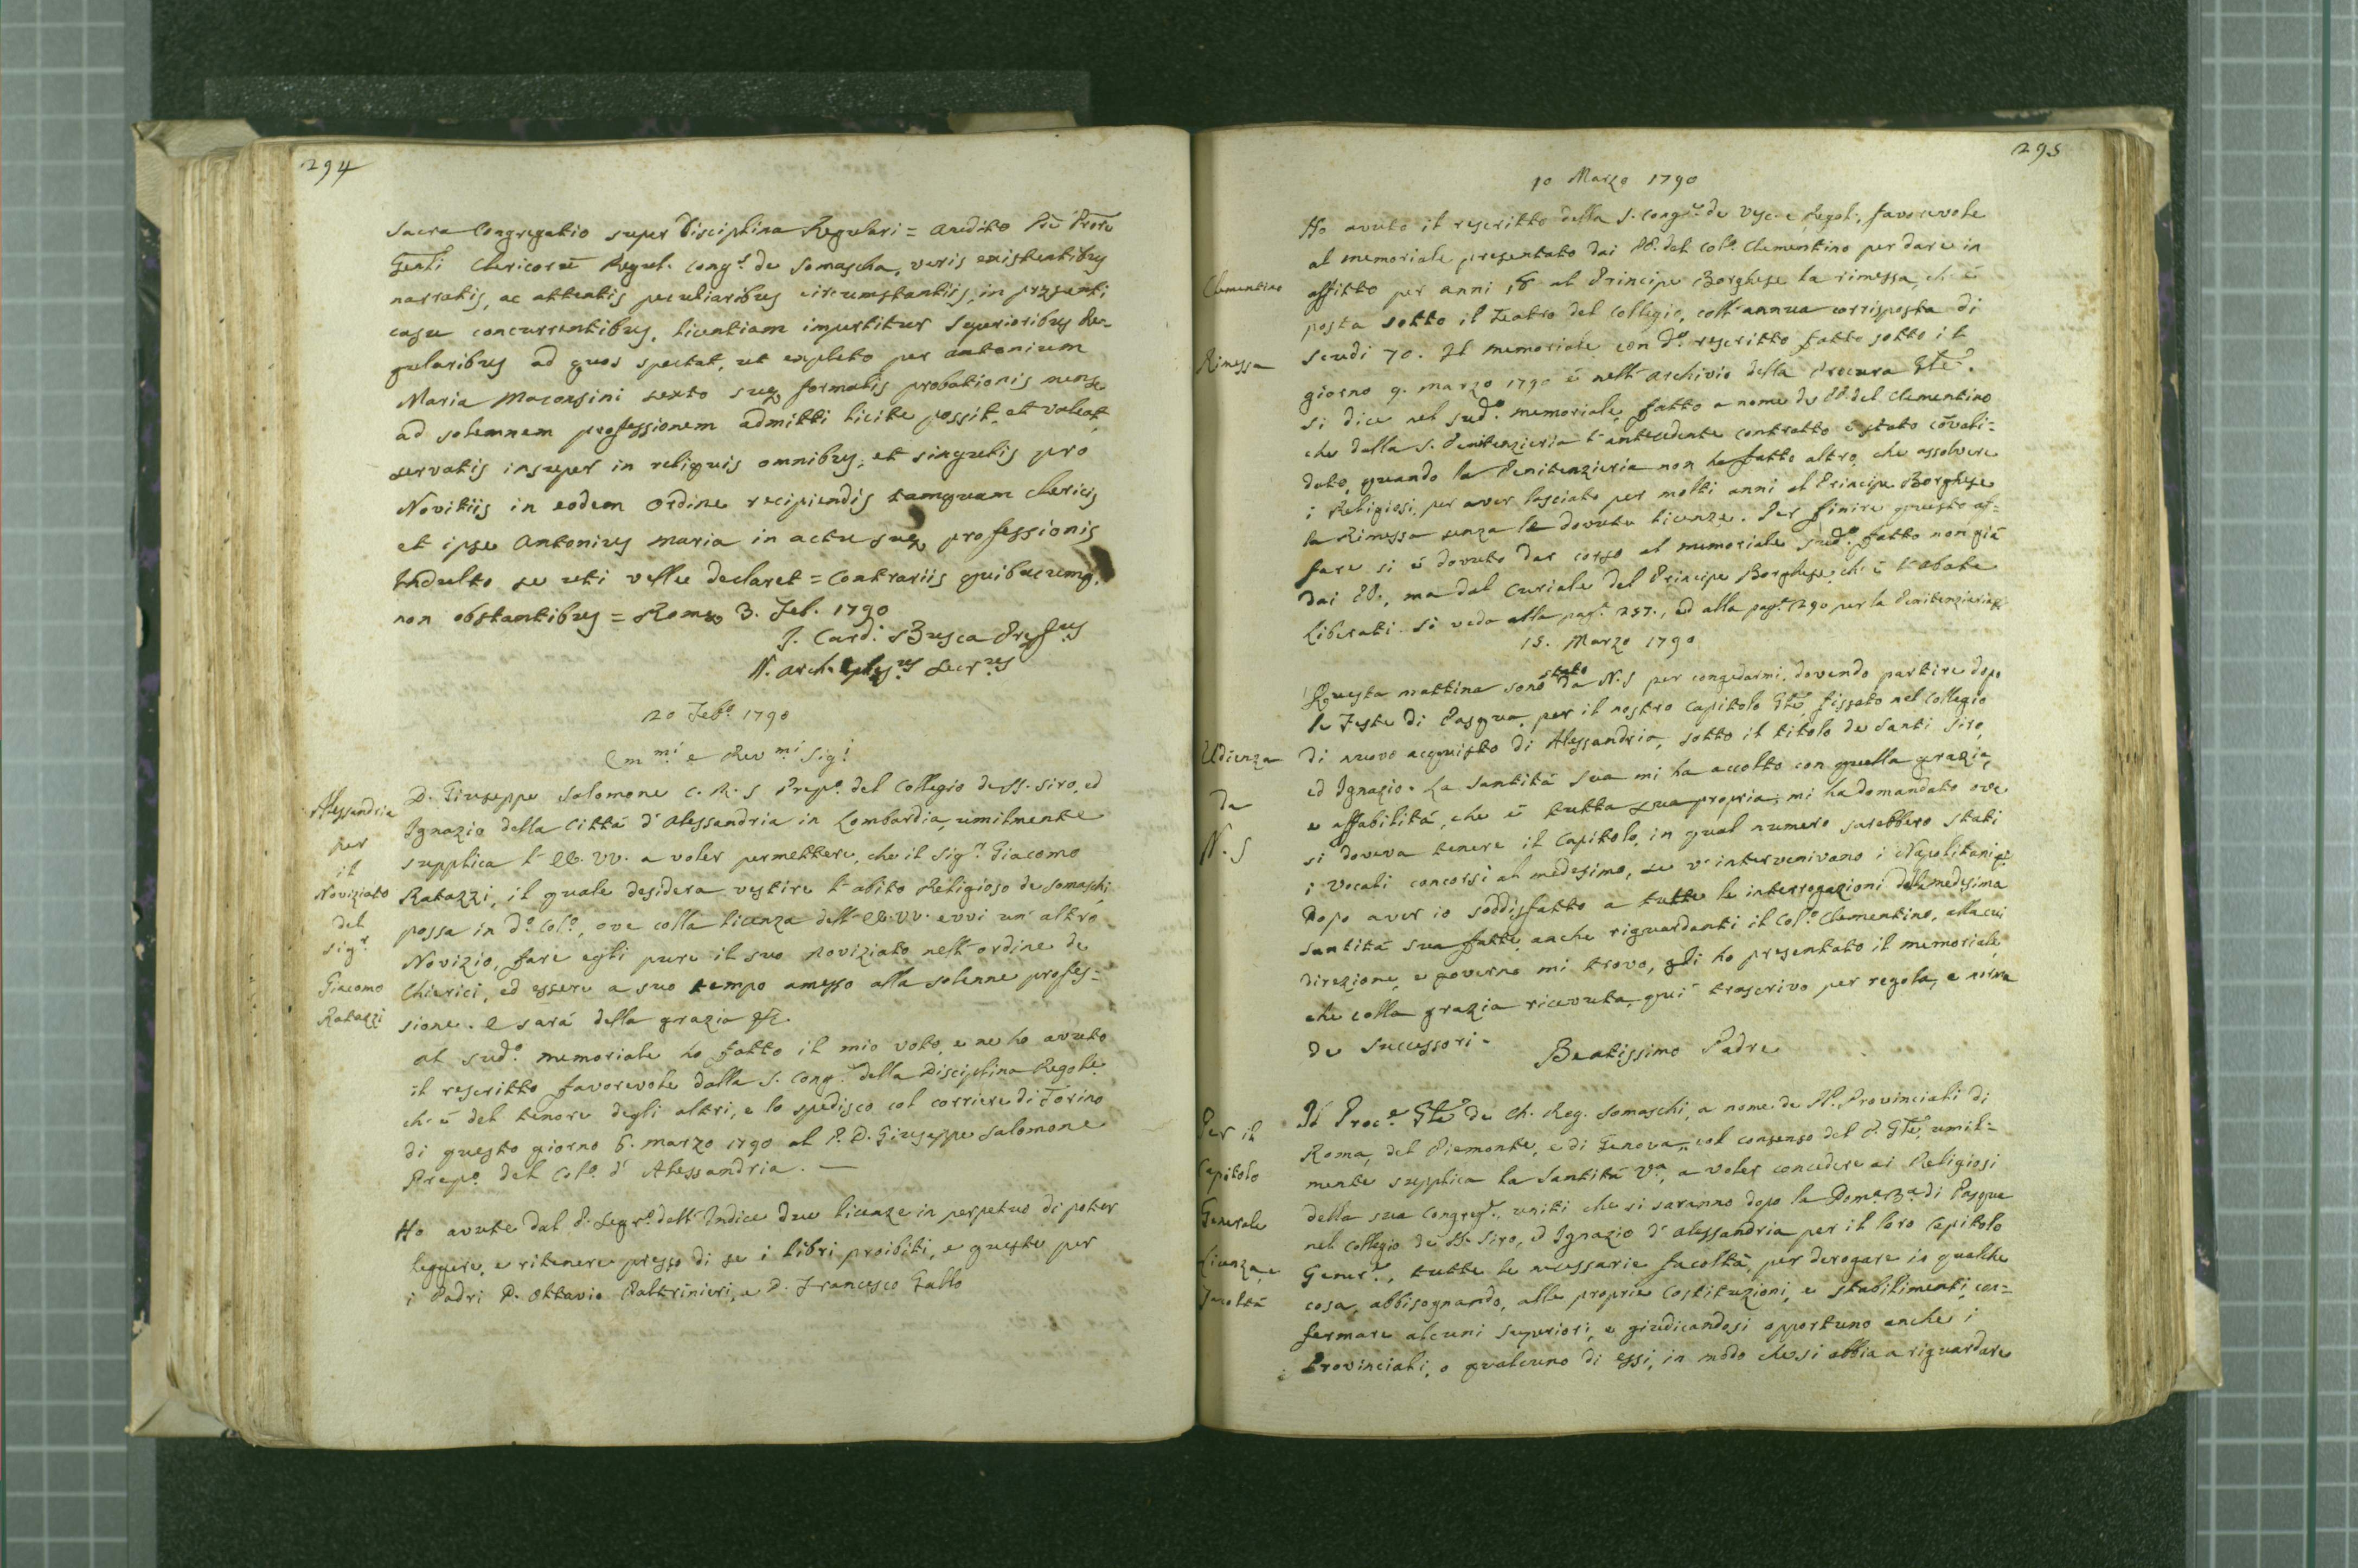 294
Sacra Congregatio super Disciplina Regulari = audito Prē Procre
Gēnli Clericorū Regul. Cong.s de Somascha, veris existentibus
narratis, ac attentis peculiaribus circumstantiis, in præsenti
casu concurrentibus, licentiam impertitur Superioribus Re=
gularibus ad quos spectat, ut expleto per Antonium
Maria Maconsini sexto suæ formalis probationis mense
ad solemnem professionem admitti licite possit, et valeat,
servatis insuper in reliquis omnibus, et singulis pro
Novitiis in eodem Ordine recipiendis tamquam Clericis
et ipse Antonius Maria in actu suæ professionis
Indulto se uti velle declaret = Contrariis quibuscumq.
non obstantibus = Romæ 3. Feb. 1790
I. Card. Busca Præfus
N. Arch. secr.us
20 Feb.o 1790
Em.mi e Rev.mi Sig.i
Alessandria
per
il
Noviziato
del
Sig.r
Giacomo
Ratazzi
D. Giuseppe Salomone C. R. S Prep.o del Collegio de SS. Siro, ed
Ignazio della Città d'Alessandria in Lombardia, umilmente
supplica l'EE. VV. a voler permettere, che il Sig.r Giacomo
Ratazzi, il quale desidera vestire l'abito Religioso de Somaschi
possa in d.o Col.o, ove colla licenza dell'EE. VV. evvi un'altro
Novizio, fare egli pure il suo Noviziato nell'ordine de
Chierici, ed essere a suo tempo amesso alla solenne profes=
sione. E sarà della grazia &c.
Al sud.o memoriale ho fatto il mio voto, e ne ho avuto
il rescritto favorevole dalla S. Cong.e della Disciplina Regole.
ch'è del tenore degli altri, e lo spedisco col corriere di Torino
di questo giorno 6. marzo 1790 al P. D. Giuseppe Salomone
Prep.o del Col.o d'Alessandria. —
Ho avute dal P. Segr.o dell'Indice due licenze in perpetuo di poter
leggere, e ritenere presso di se i libri proibiti, e queste per
i Padri D. Ottavio Paltrinieri, e D. Francesco Gallo
295
10 Marzo 1790
Clementino
Rimessa
Ho avuto il rescritto della S. Cong.e de Vesc. e Regol., favorevole
al memoriale presentato dai PP. del Col.o Clementino per dare in
affitto per anni 18 al Principe Borghese la rimessa, ch'è
posta sotto il Teatro del Collegio, coll'annua corrisposta di
scudi 70. Il memoriale con d.o rescritto fatto sotto il
giorno 9. marzo 1790 è nell'Archivio della Procura Gle.
si dice nel sud.o memoriale, fatto a nome de PP. del Clementino
che dalla S. Penitenzieria l'antecedente contratto è stato cōvali=
dato, quando la Penitenzieria non ha fatto altro, che assolvere
i Religiosi per aver lasciato per molti anni al Principe Borghese
la Rimessa senza le dovute licenze. Per finire questo af=
fare si è dovuto dar corso al memoriale sud.o fatto non già
dai PP., ma dal Curiale del Principe Borghese, ch'è l'abate
Liberati. Si veda alla pag.a 257., ed alla pag.a 290 per la Penitenzieria
15. Marzo 1790
Udienza
Da
N. S
Questa mattina sono stato da N. S per congedarmi, dovendo partire dopo
le Feste di Pasqua, per il nostro Capitolo Gle, fissato nel Collegio
di nuovo acquisto di Alessandria, sotto il titolo de Santi Siro,
ed Ignazio. La Santità sua mi ha accolto con quella grazia,
e affabilità, che è tutta sua propria; mi ha domandato ove
si doveva tenere il Capitolo, in qual numero sarebbero stati
i Vocali concorsi al medesimo, se v'intervenivano i Napolitani
Dopo aver io soddisfatto a tutte le interrogazioni dalla medesima
santità sua fatte, anche riguardanti il Col.o Clementino, alla cui
direzione, e governo mi trovo, gli ho presentato il memoriale,
che colla grazia ricevuta, qui trascrivo per regola, e norma
de Successori.
Beatissimo Padre
Per il
Capitolo
Generale
Licenza, e
Facoltà
Il Proc.e Gle de Ch. Reg. Somaschi, a nome de PP. Provinciali di
Roma, del Piemonte, e di Genova, col consenso del P. Gle, umil=
mente supplica la Santità V.a, a voler concedere ai Religiosi
della sua Congreg.e, uniti che si saranno dopo la Dom.a 3.a di Pasqua
nel Collegio de SS. Siro, ed Ignazio d'Alessandria per il loro Capitolo
Gener.e, tutte le necessarie facoltà, per derogare in qualche
cosa, abbisognando, alle proprie Costituzioni, e stabilimenti, con=
fermare alcuni Superiori, e giudicandosi opportuno anche i
Provinciali, o qualcuno di essi, in modo che si abbia a riguardare